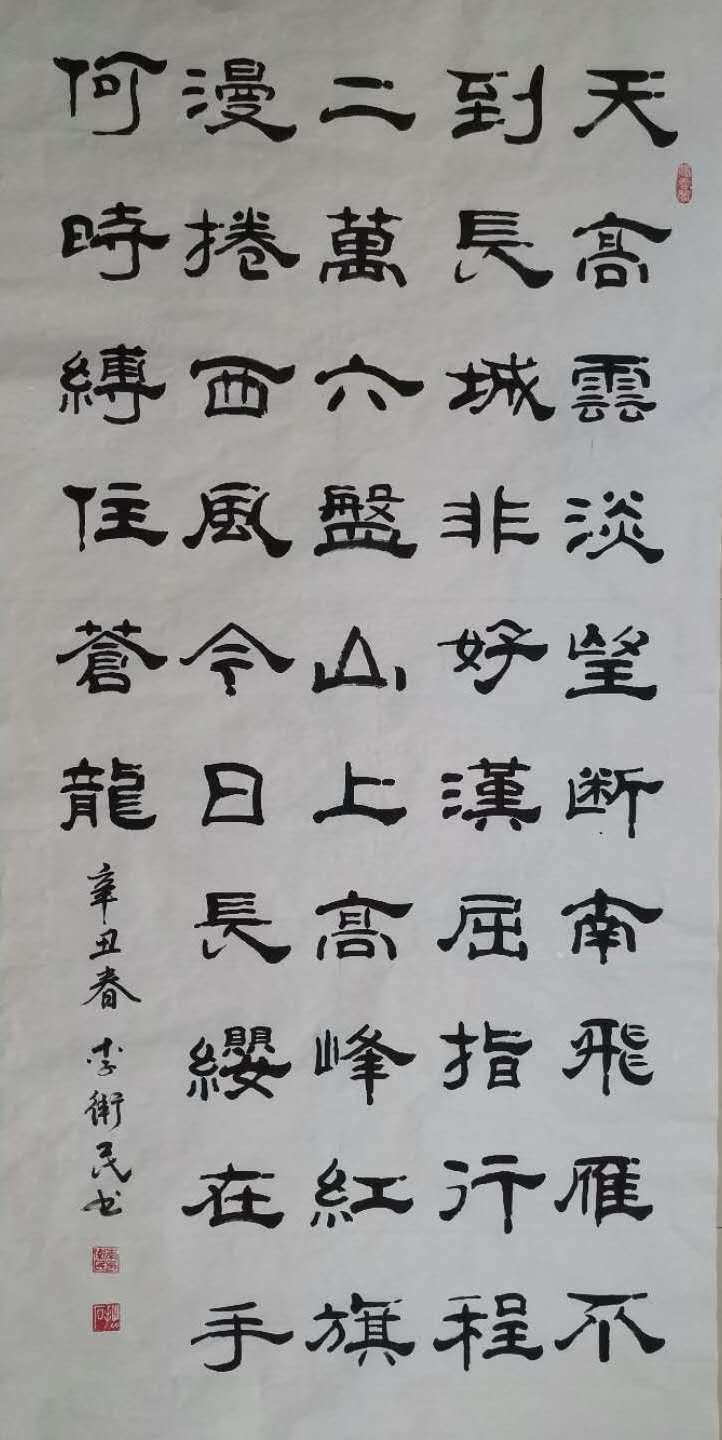 天高雲淡望断南飛雁不
到長城非好漢屈指行程
二萬六盤山上高峰紅旗
漫捲西風今日長纓在手
何時縛住蒼龍
辛丑春 李衛民书